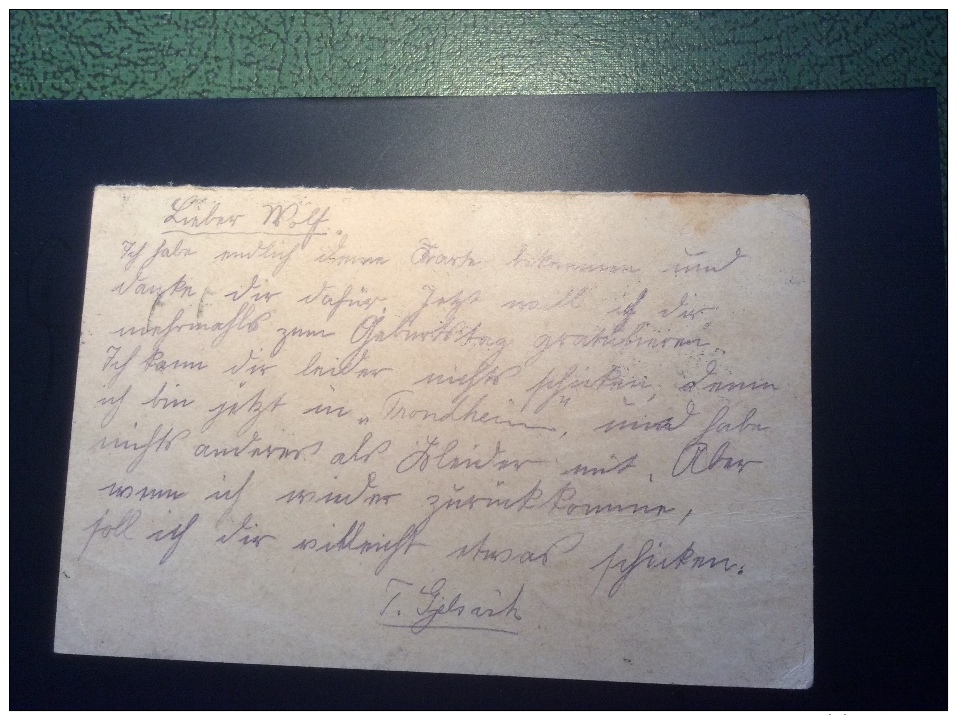 Lieber Wolf.
Ich habe endlich deine Karte bekommen und
danke dir dafür. Jetzt will ich dir
mehrmahls zum Geburtstag gratulieren.
Ich kann dir leider nichts schicken, denn
ich bin jetzt in „Trondheim", und habe
nichts anderes als Kleider mit. Aber
wenn ich wieder zurückkomme,
soll ich dir villeicht etwas schicken.
T.